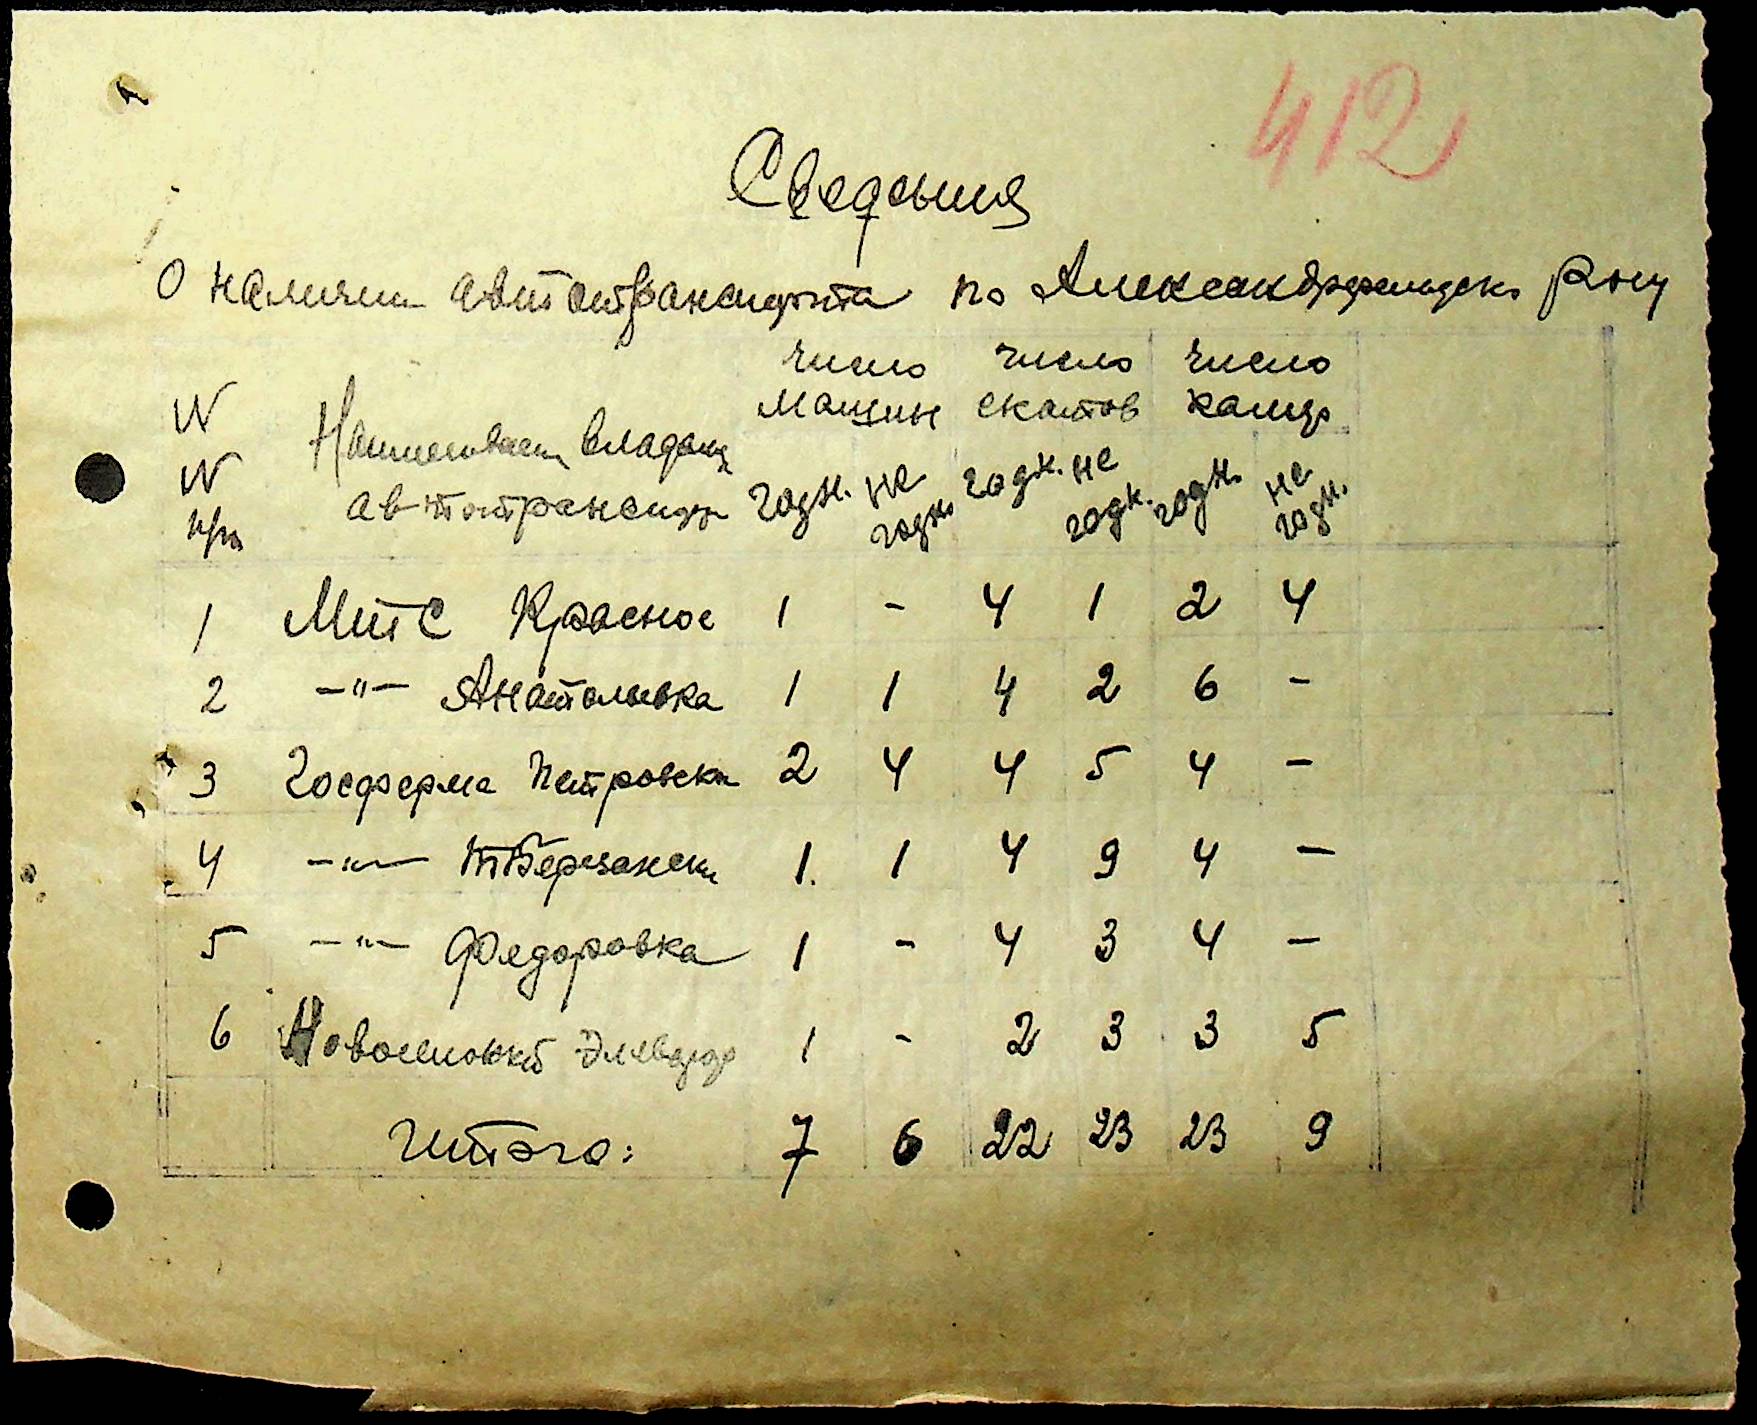 412
Сведения
О наличии автотранспорта по Александрфельдско Рону
N N п/п Наименован владельц автотранспорт число машин число скатов число камер
годн. не годн. годн. не годн. годн. не годн.
1 МТС Красное 1 - 4 1 2 4
2 -"- Анатольевка 1 1 4 2 6 -
3 Госферма Петровски 2 4 4 5 4 -
4 -"- Т Березанск 1. 1 4 9 4 -
5 -"- Федоровка 1 - 4 3 4 -
6 Элеватор 1 - 2 3 3 5
Итого: 7 6 22 23 23 9